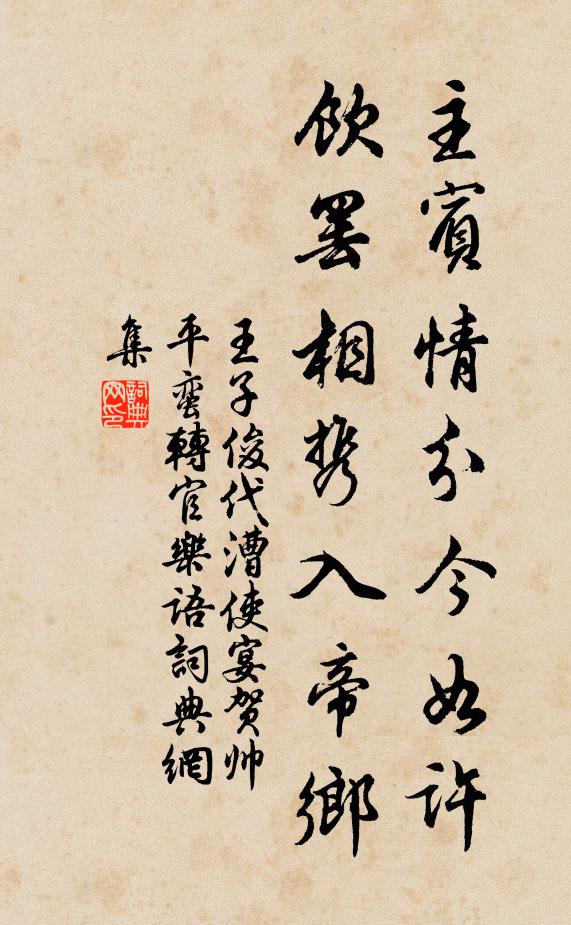 主賓情分今如許
飲罷相携入帝鄉
王子俊代漕使宴賀帅
平蛮轉官樂語詞典網
集
詞典网印